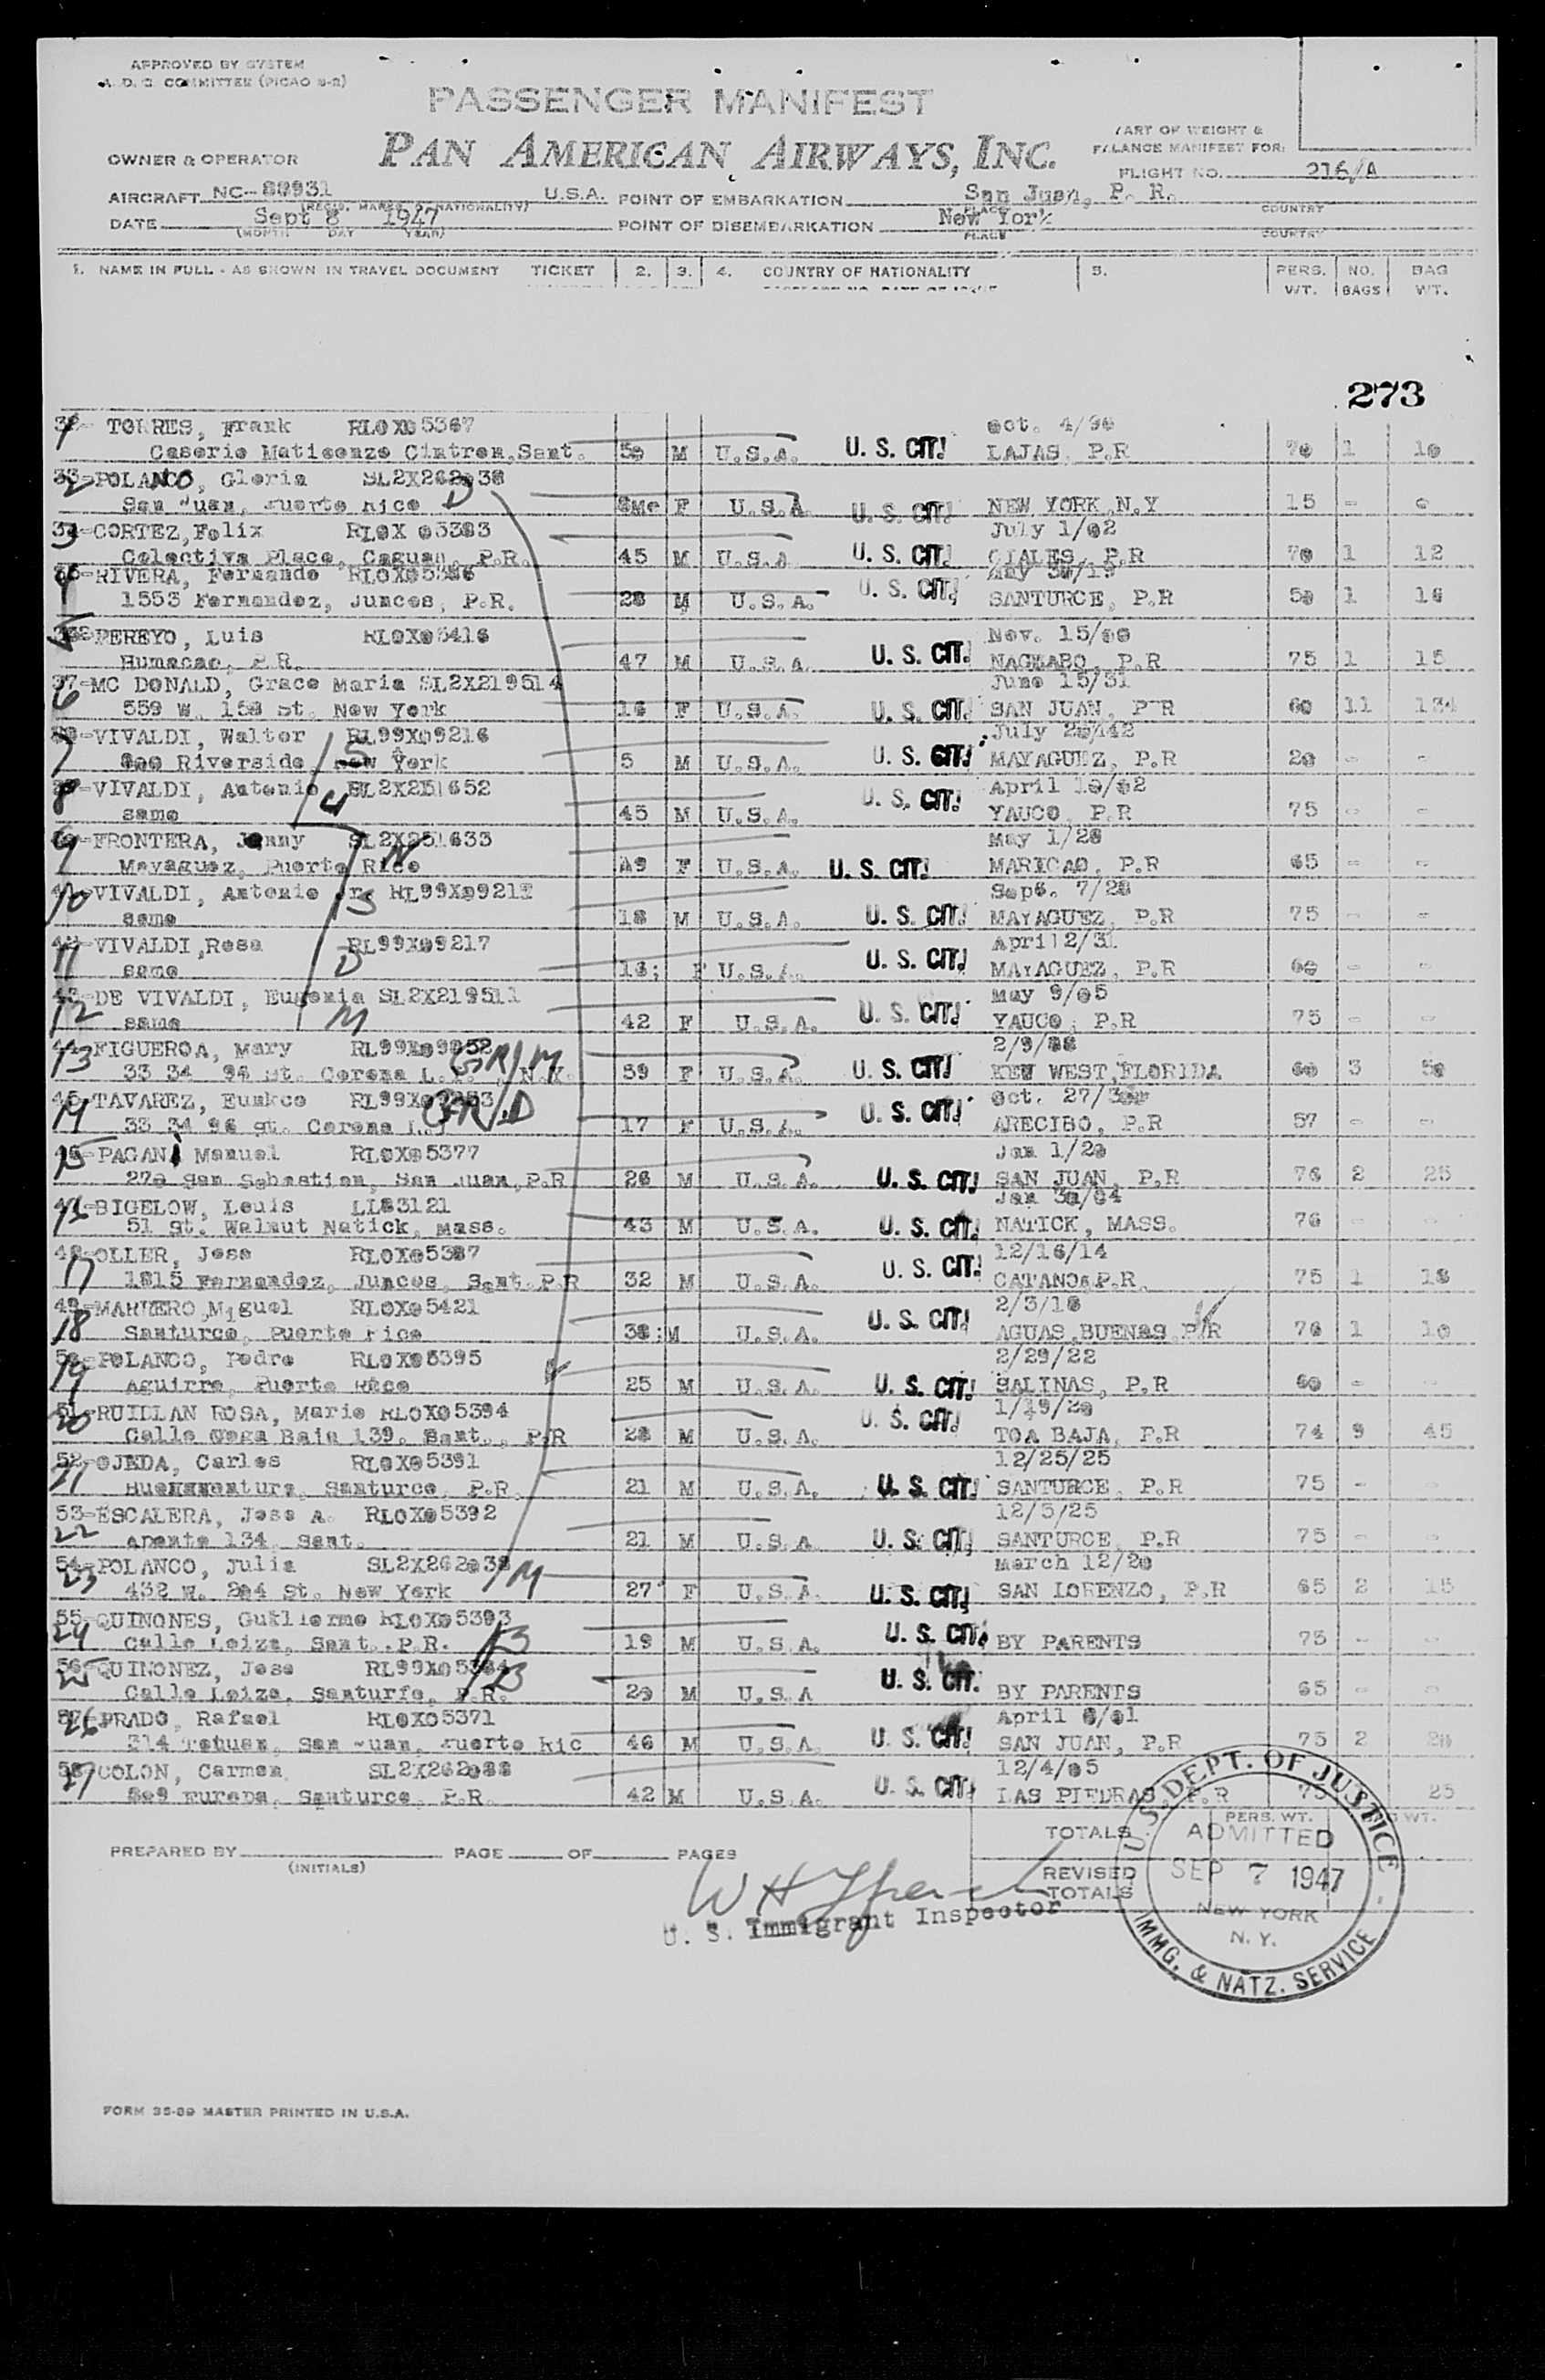 APPROVED BY SYSTEM
A. D. C. COMMITTEE (PICAO 8-2)
PASSENGER MANIFEST
PAN AMERICAN AIRWAYS, INC.
PART OF WEIGHT &
BALANCE MANIFEST FOR:
OWNER & OPERATOR
FLIGHT NO. 216/A
AIRCRAFT NC- U.S.A. POINT OF EMBARKATION San Juan, P. R.
(REGIS. MARKS & NATIONALITY) PLACE COUNTRY
DATE Sept 8 1947 POINT OF DISEMBARKATION New York
(MONTH DAY YEAR) PLACE COUNTRY
1. NAME IN FULL - AS SHOWN IN TRAVEL DOCUMENT TICKET 2. 3. 4. COUNTRY OF NATIONALITY 5. PERS. WT. NO. BAGS BAG WT.
273
1 TORRES, Frank RLOX05367 Oct. 4/
Caserio Sant. 50 M U.S.A. U. S. CIT. LAJAS, P.R 70 1 10
2 POLANCO, Gloria SL2X262038 D
San Juan, Puerto Rico F U.S.A U. S. CIT. NEW YORK, N.Y 15 -
3 CORTEZ, Felix RLOX 05383 July 1/02
Colectiva Place, Caguan, P.R. 45 M U.S.A U. S. CIT. CIALES, P.R 70 1 12
4 RIVERA, Fernando May
1553 Fernandez, Juncos, P.R. 28 M U.S.A. U. S. CIT. SANTURCE, P.R 50 1 10
5 PEREYO, Luis RLOX05416 Nov. 15/00
Humacao, P.R. 47 M U.S.A. U. S. CIT. NAGUABO, P.R 75 1 15
6 37-MC DONALD, Grace Maria SL2X219514 June 15/31
559 W. St. New York 16 F U.S.A. U. S. CIT. SAN JUAN, P.R 60 11 134
7 VIVALDI, Walter RL99X09216 S July
Riverside New York 5 M U.S.A. U. S. CIT. MAYAGUEZ, P.R 20 - -
8 VIVALDI, Antonio SL2X251652 April 10/02
same 45 M U.S.A. U. S. CIT. YAUCO, P.R 75 - -
9 FRONTERA, Jenny SL2X251633 May 1/28
Mayaguez, Puerto Rico N 19 F U.S.A. U. S. CIT. MARICAO, P.R 65 - -
10 VIVALDI, Antonio Jr. Sept. 7/28
same S 18 M U.S.A. U. S. CIT. MAYAGUEZ, P.R 75 - -
11 VIVALDI, Rosa RL99X09217 April 2/31
same D 16 F U.S.A. U. S. CIT. MAYAGUEZ, P.R 60 - -
12 DE VIVALDI, Eugenia SL2X219511 May 9/05
same M 42 F U.S.A. U. S. CIT. YAUCO, P.R 75 - -
13 FIGUEROA, Mary GR/M 2/9/88
33 34 St. Corona N.Y. 59 F U.S.A. U. S. CIT. KEY WEST, FLORIDA 60 3 50
14 TAVAREZ, GR/D Oct. 27/
33 34 96 St. Corona 17 F U.S.A. U. S. CIT. ARECIBO, P.R 57 - -
15 PAGANI Manuel RLOX05377 Jan 1/20
270 San Sebastian, San Juan, P.R 26 M U.S.A. U. S. CIT. SAN JUAN, P.R 76 2 25
16 BIGELOW, Louis LL83121 Jan 30/04
51 St. Walnut Natick, Mass. 43 M U.S.A. U. S. CIT. NATICK, MASS. 76 - -
17 OLLER, Jose RLOX05387 12/16/14
1815 Fernandez, Juncos, Sant. P.R 32 M U.S.A. U. S. CIT. CATANO, P.R. 75 1 18
18 MARRERO, Miguel RLOX05421 2/3/
Santurce, Puerto Rico 38 M U.S.A. U. S. CIT. AGUAS BUENAS P/R 76 1 10
19 POLANCO, Pedro RLOX05395 2/29/22
Aguirre, Puerto Rico 25 M U.S.A. U. S. CIT. SALINAS, P.R 60 - -
20 RUILLAN ROSA, Mario RLOX05394 1/19/20
Calle Baja 139. Sant., P.R 28 M U.S.A. U. S. CIT. TOA BAJA, P.R 74 9 45
21 52-OJEDA, Carlos RLOX05391 12/25/25
Santurce, P.R. 21 M U.S.A. U. S. CIT. SANTURCE, P.R 75 - -
22 53-ESCALERA, Jose A. RLOX05392 12/5/25
Aponte 134, Sant. 21 M U.S.A U. S. CIT. SANTURCE, P.R 75 - -
23 54-POLANCO, Julia SL2X262038 M March 12/20
432 W. 204 St. New York 27 F U.S.A. U. S. CIT. SAN LORENZO, P.R 65 2 15
24 55-QUINONES, Guillermo RLOX05393
Calle Loiza, Sant., P.R. B 19 M U.S.A. U. S. CIT. BY PARENTS 75 - -
25 56-QUINONEZ, Jose B
Calle Loiza, Santurfe, P.R. 20 M U.S.A U. S. CIT. BY PARENTS 65 - -
26 PRADO, Rafael RLOX05371 April
314 Tetuan, San Juan, Puerto Ric 46 M U.S.A U. S. CIT. SAN JUAN, P.R 75 2
27 COLON, Carmen SL2X262088 12/4/05
Europa, Santurce, P.R. 42 M U.S.A. U. S. CIT. LAS PIEDRAS, P.R 75 25
PERS. WT. WT.
PREPARED BY PAGE OF PAGES TOTALS
(INITIALS)
REVISED TOTALS
U. S. Immigrant Inspector
U. S. DEPT. OF JUSTICE
ADMITTED
SEP 7 1947
NEW YORK
N. Y.
IMMG. & NATZ. SERVICE
FORM 35-89 MASTER PRINTED IN U.S.A.